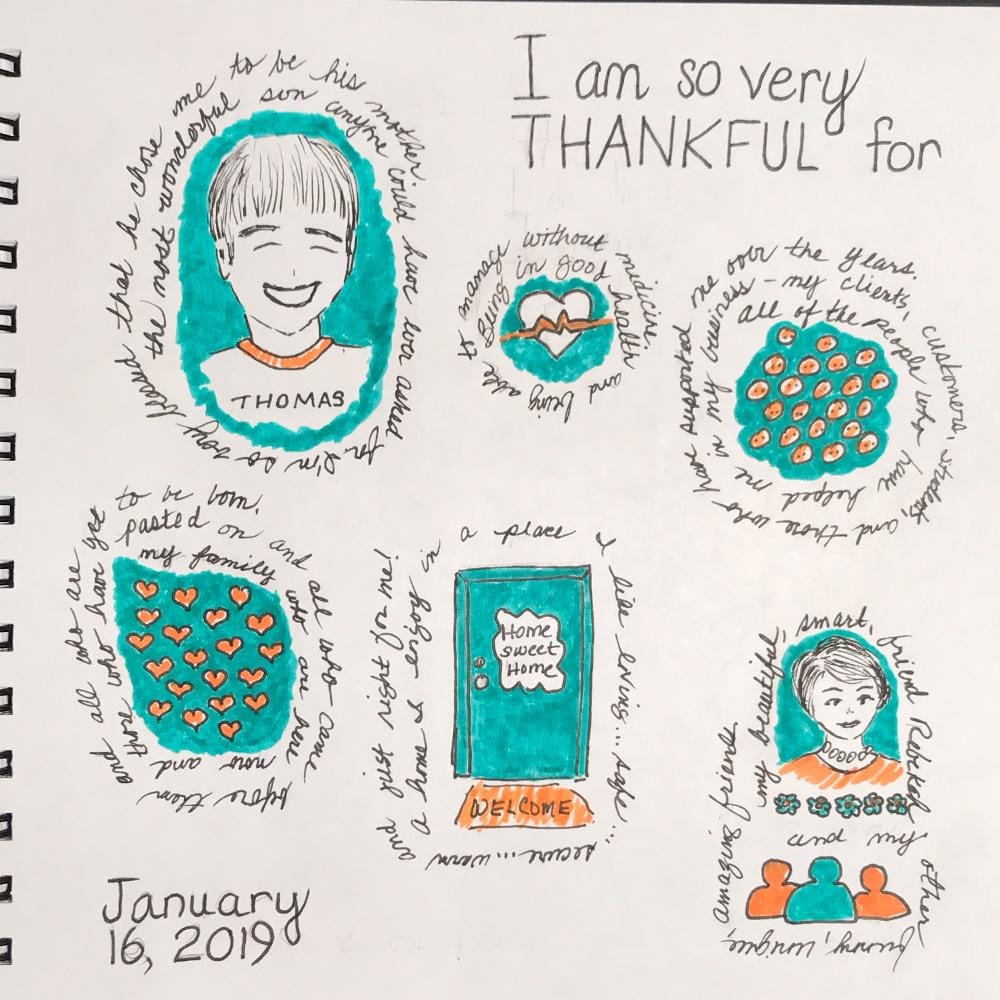 I am so very
THANKFUL for
the most wonderful son anyone could have ever asked for. I'm so very blessed that he chose me to be his mother.
THOMAS
Being in good health and being able to manage without medicine.
all of the people who have helped me in my business - my clients, customers, students, and those who have supported me over the years.
my family who are here now and those who have pasted on and all who came before them and all who are yet to be born.
a home I enjoy in a place I like living... safe... secure... warm and just right for me!
Home
sweet
Home
WELCOME
my beautiful, smart, friend Rebekah
and my other funny, unique, amazing friends
January
16, 2019